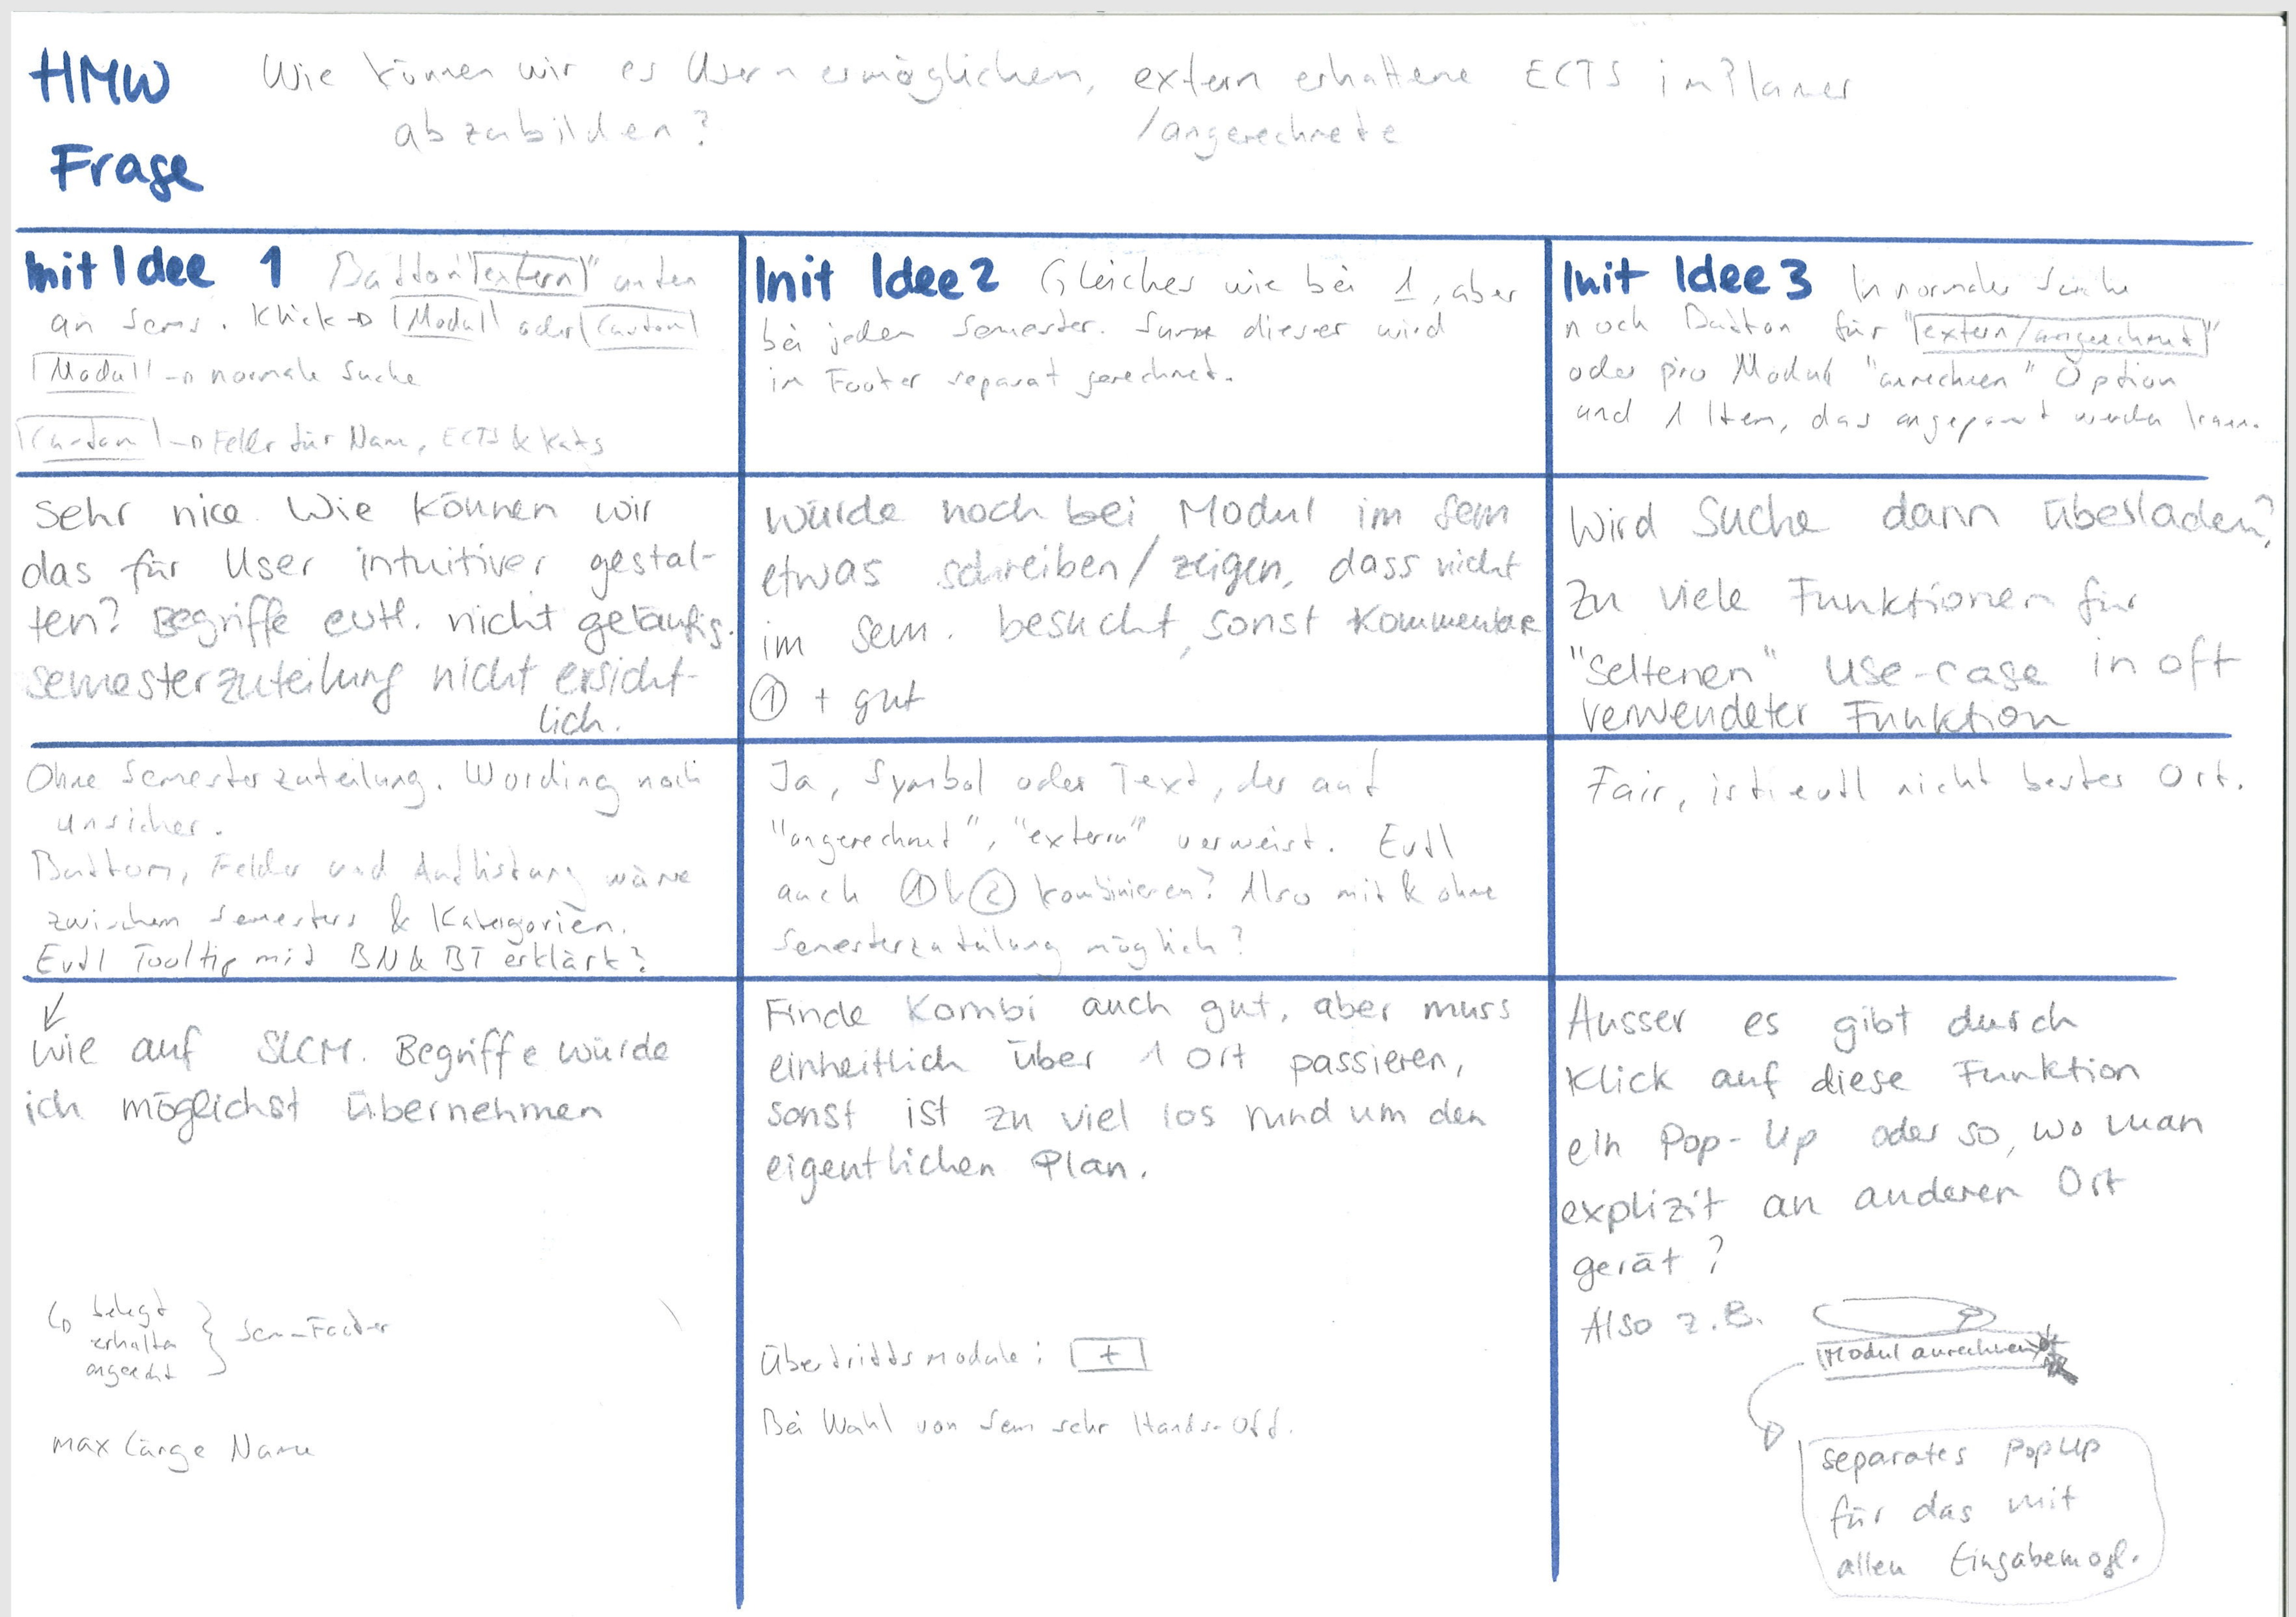 HMW Frage
Wie können wir es Usern ermöglichen, extern erhaltene ECTS im Planer
/angerechnete
abzubilden?
Init Idee 1 Button "extern" unten
an Sems. Klick → Modul oder Custom
Modul → normale Suche
Custom → Felder für Name, ECTS & Kats
Init Idee 2 Gleiches wie bei 1, aber
bei jedem Semester. Summe dieser wird
im Footer separat gerechnet.
Init Idee 3 In normaler Suche
noch Button für "extern/angerechnet"
oder pro Modul "anrechnen" Option
und 1 Item, das angepasst werden kann.
Sehr nice. Wie können wir
das für User intuitiver gestal-
ten? Begriffe evtl. nicht geläufig.
Semesterzuteilung nicht ersicht-
lich.
Würde noch bei Modul im Sem
etwas schreiben/zeigen, dass nicht
im Sem. besucht, sonst Kommentar
① + gut
Wird Suche dann überladen?
Zu viele Funktionen für
"Seltenen" Use-case in oft
verwendeter Funktion
Ohne Semesterzuteilung. Wording noch
unsicher.
Button, Felder und Auflistung wäre
zwischen Semesters & Kategorien.
Evtl Tooltip mit BN & BT erklärt?
Ja, Symbol oder Text, der auf
"angerechnet", "extern" verweist. Evtl
auch ① & ② kombinieren? Also mit & ohne
Semesterzuteilung möglich?
Fair, ist evtl nicht bester Ort.
Wie auf SLCM. Begriffe würde
ich möglichst übernehmen
belegt
erhalten
angerecht
Sem-Footer
max Länge Name
Finde Kombi auch gut, aber muss
einheitlich über 1 Ort passieren,
sonst ist zu viel los rund um den
eigentlichen Plan.
Übertrittsmodule: +
Bei Wahl von Sem sehr Hands-Off.
Ausser es gibt durch
Klick auf diese Funktion
ein Pop-Up oder so, wo man
explizit an anderen Ort
gerät?
Also z.B.
Modul anrechnen
separates PopUp
für das mit
allen Eingabemögl.